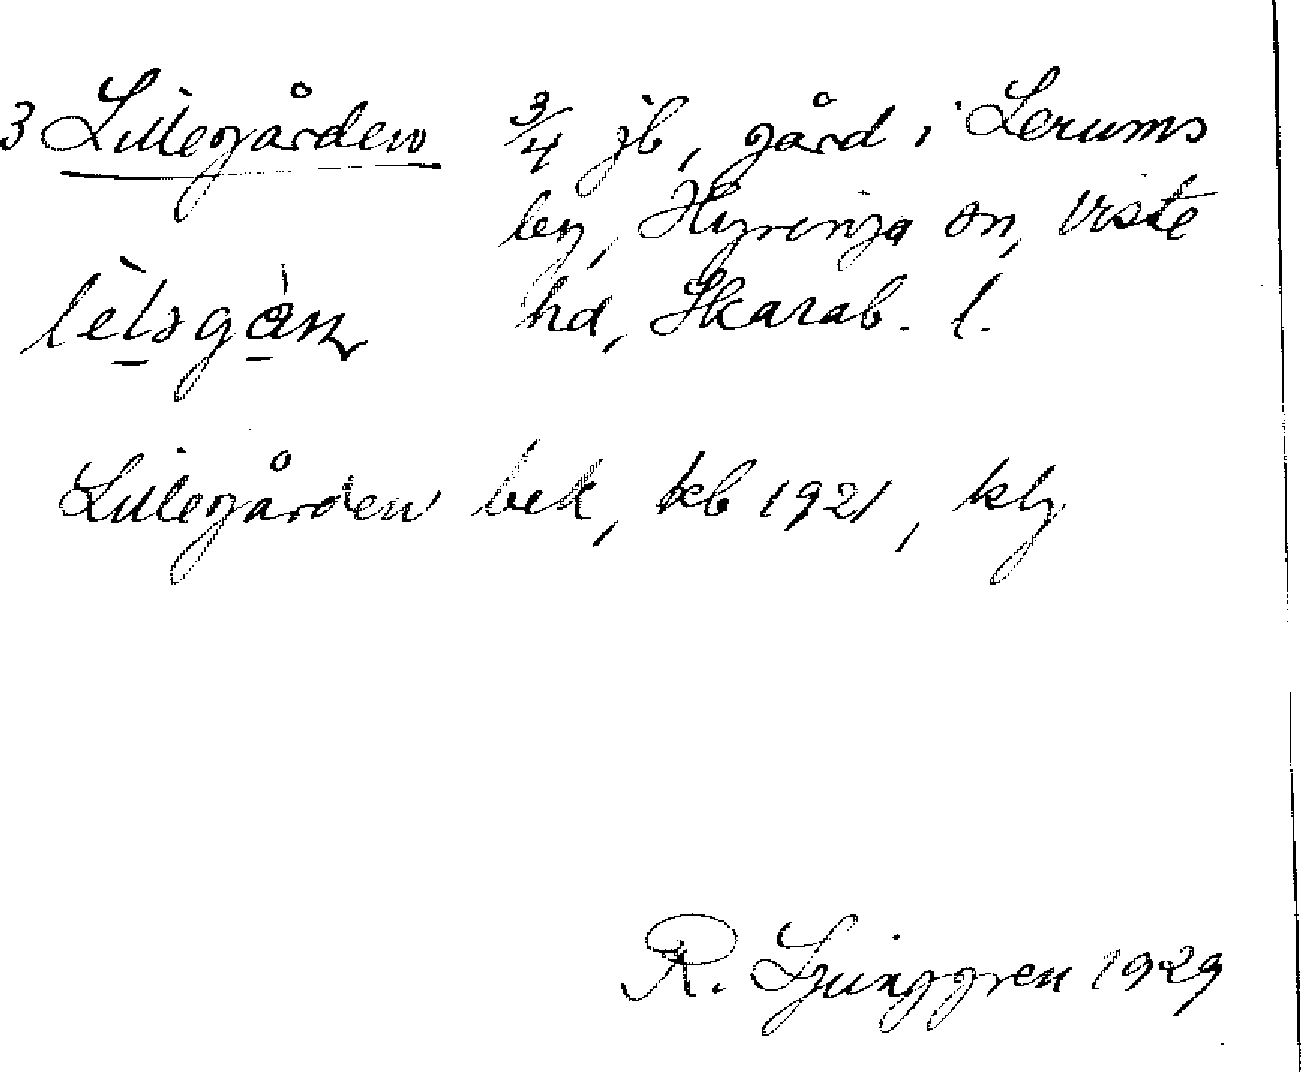 3 Lillegården 3/4 jb, gård i Lerums
by, Hyringa sn, Viste
hd, Skarab. l.
Lillegården bek, kb 1921, klg
R. Ljunggren 1929